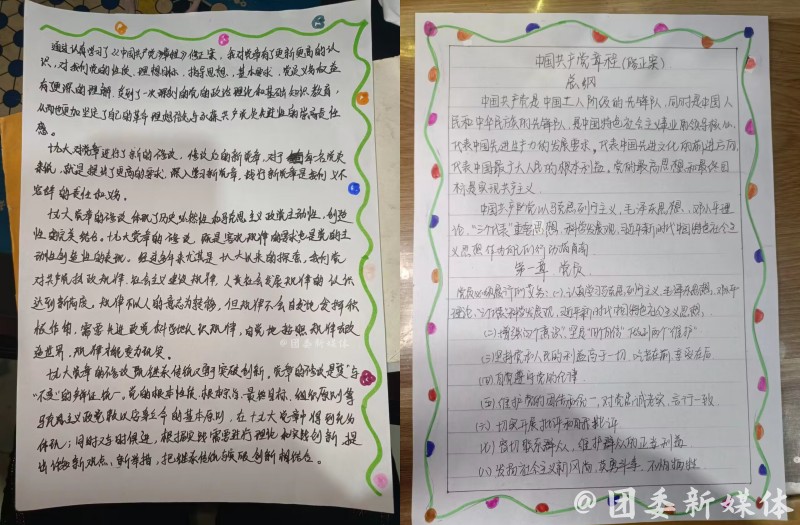 通过认真学习了《中国共产党章程》修正案，我对党章有了更新更高的认
识，对我们党的性质、理想目标，指导思想，基本要求，党员义务权益
有更深的理解，受到了一次深刻的党的政治理论和基础知识教育，
从而也更加坚定了自己的革命理想信念与永葆共产党员先进性的崇高责任
感。
十九大对党章进行了新的修改，修改后的新党章，对于每一名党员
来说，就是提出了更高的要求，深入学习新党章，践行新党章是我们义不
容辞的责任和义务。
十九大党章的修改体现了历史必然性和马克思主义政党主动性，创造
性的完美结合。十九大党章的修改既是客观规律的要求也是党的主
动性创造性的表现。经过多年来尤其是十八大以来的探索，我们党
对共产党执政规律，社会主义建设规律，人类社会发展规律的认识
达到新高度，规律不以人的意志为转移，但规律不会自发地发挥积
极作用，需要先进政党科学地认识规律，自觉地按照规律去改
造世界，规律才能变为现实。
十九大党章的修改既继承传统又有突破创新，党章的修改是“变”与
“不变”的辩证统一。党的根本性质、根本宗旨、最终目标、组织原则等
马克思主义政党赖以安身立命的基本原则，在十九大党章中得到充分
体现；同时又与时俱进，根据实践需要进行理论和实践创新，提
出许多新观点，新举措，把继承传统与突破创新相结合。
@团委新媒体
中国共产党章程(修正案)
总纲
中国共产党是中国工人阶级的先锋队，同时是中国人
民和中华民族的先锋队，是中国特色社会主义事业的领导核心，
代表中国先进生产力的发展要求，代表中国先进文化的前进方向，
代表中国最广大人民的根本利益。党的最高思想和最终目
标是实现共产主义
中国共产党以马克思列宁主义，毛泽东思想，邓小平理
论，“三个代表”重要思想，科学发展观，习近平新时代中国特色社会主
义思想作为自己的行动指南
第一章 党员
党员必须履行的义务：(一)认真学习马克思列宁主义，毛泽东思想，邓小平
理论，“三个代表”科学发展观，习近平新时代中国特色社会主义思想。
(二)增强“四个意识”坚定“四个自信”做到“两个维护”
(三)坚持党和人民的利益高于一切，吃苦在前，享受在后
(四)自觉遵守党的纪律
(五)维护党的团结和统一，对党忠诚老实，言行一致
(六)切实开展批评和自我批评
(七)密切联系群众，维护群众的正当利益
(八)发扬社会主义新风尚，英勇斗争，不怕牺牲
@团委新媒体